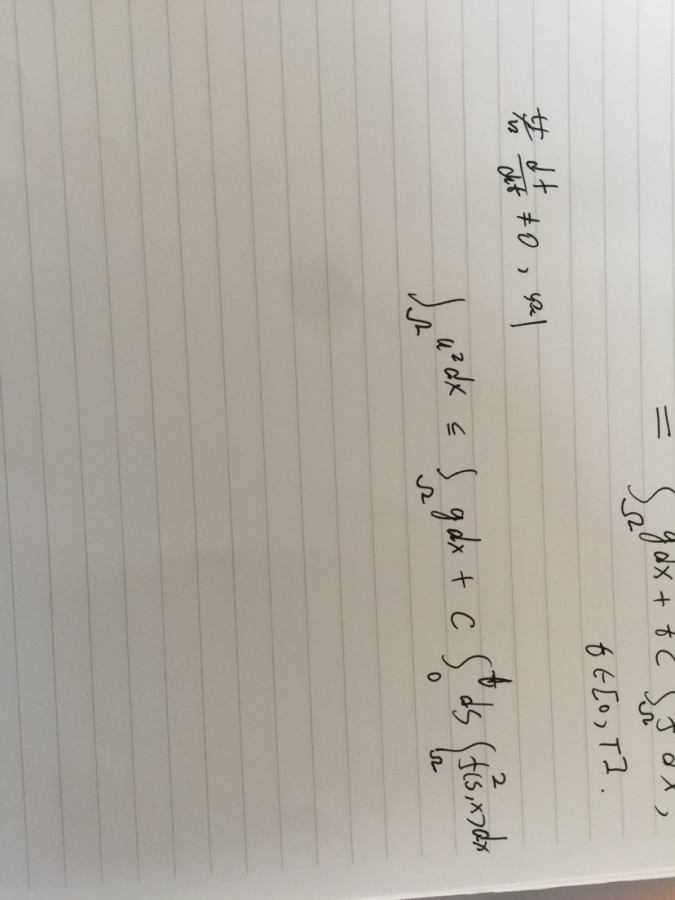 = ∫_Ω g dx + tC ∫_Ω f dx,
t∈[0,T].
若 df/dt ≠ 0, 则
∫_Ω u² dx ≤ ∫_Ω g dx + C ∫_0^t ds ∫_Ω f²(s,x) dx